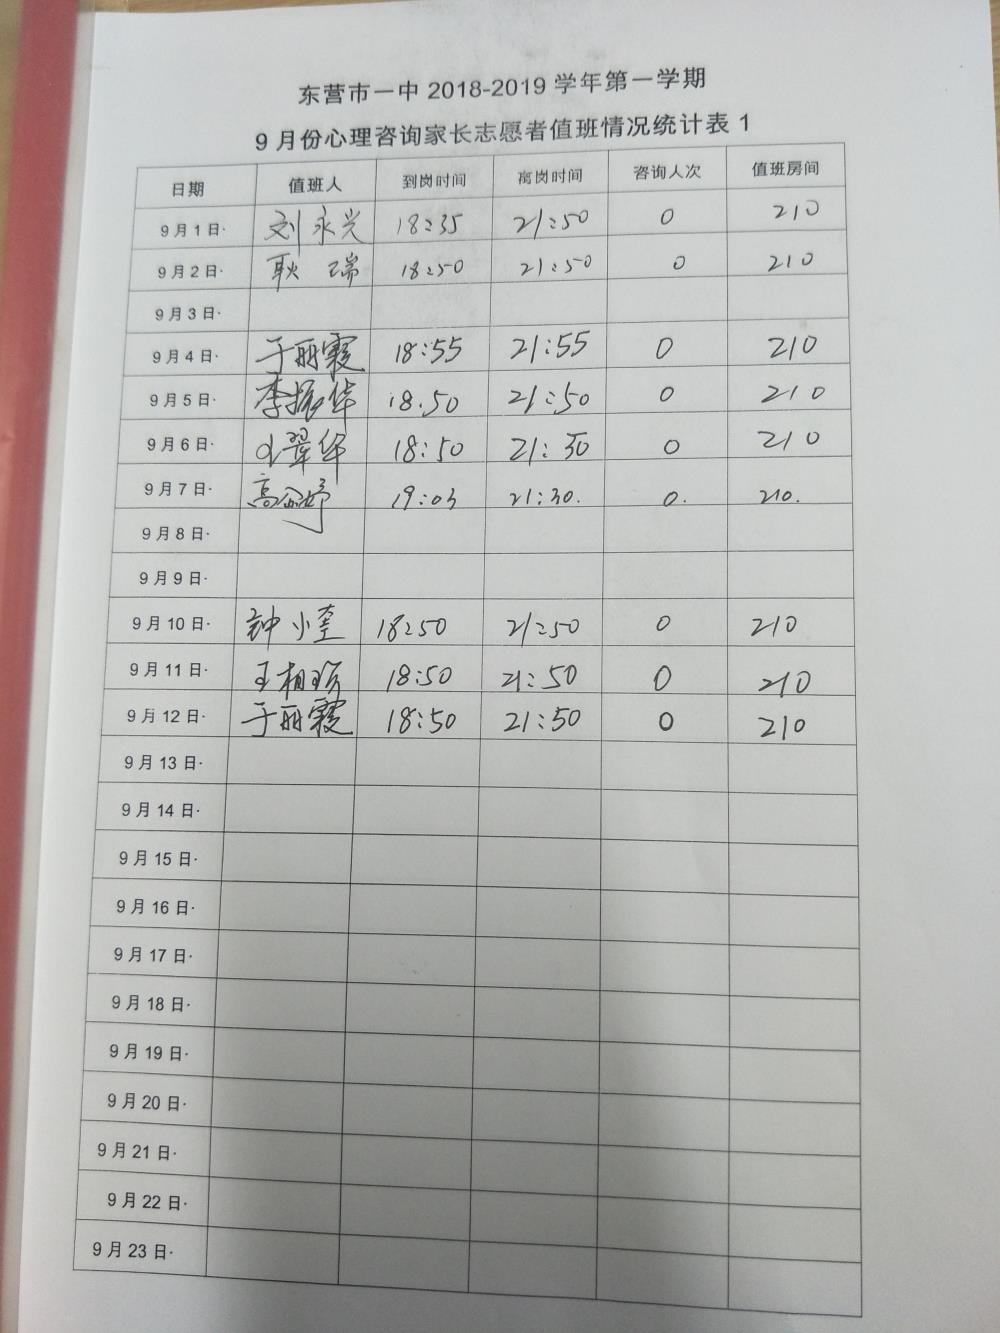 东营市一中 2018-2019 学年第一学期
9 月份心理咨询家长志愿者值班情况统计表 1
日期 值班人 到岗时间 离岗时间 咨询人次 值班房间
9 月 1 日· 刘永兴 18:35 21:50 0 210
9 月 2 日· 耿瑞 18:50 21:50 0 210
9 月 3 日·
9 月 4 日· 于丽霞 18:55 21:55 0 210
9 月 5 日· 李振华 18.50 21:50 0 210
9 月 6 日· 翠华 18:50 21:30 0 210
9 月 7 日· 高婷 19:03 21:30. 0. 210.
9 月 8 日·
9 月 9 日·
9 月 10 日· 钟小奎 18:50 21:50 0 210
9 月 11 日· 王相 18:50 21:50 0 210
9 月 12 日· 于丽霞 18:50 21:50 0 210
9 月 13 日·
9 月 14 日·
9 月 15 日·
9 月 16 日·
9 月 17 日·
9 月 18 日·
9 月 19 日·
9 月 20 日·
9 月 21 日·
9 月 22 日·
9 月 23 日·